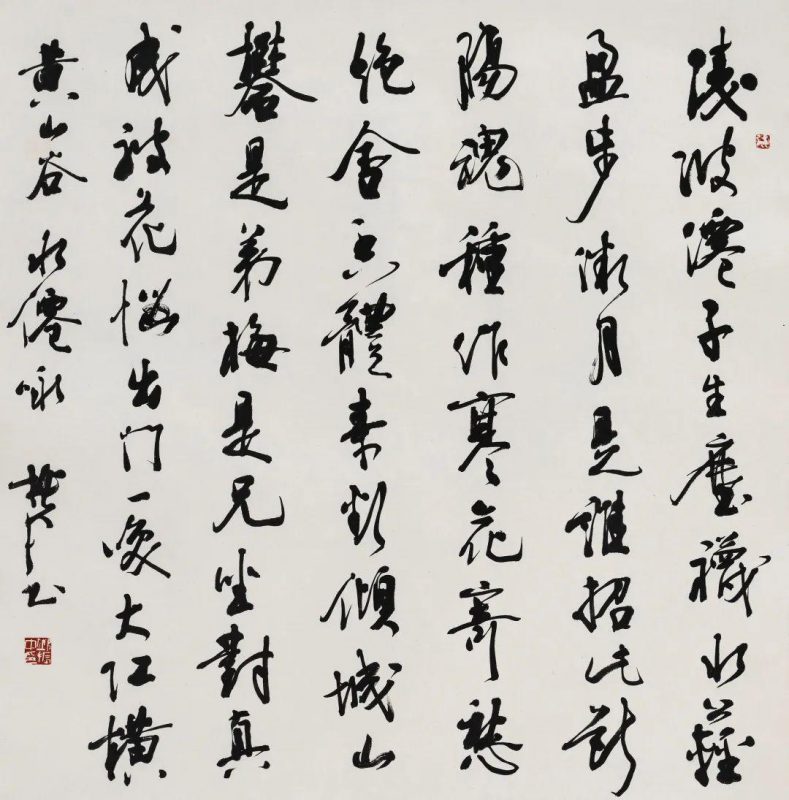 淩波僊子生塵襪水上輕
盈步微月是誰招此斷
腸魂種作寒花寄愁
絕含香體素欲傾城山
礬是弟梅是兄坐對真
成被花惱出門一咲大江橫
黃山谷水僊咏 書